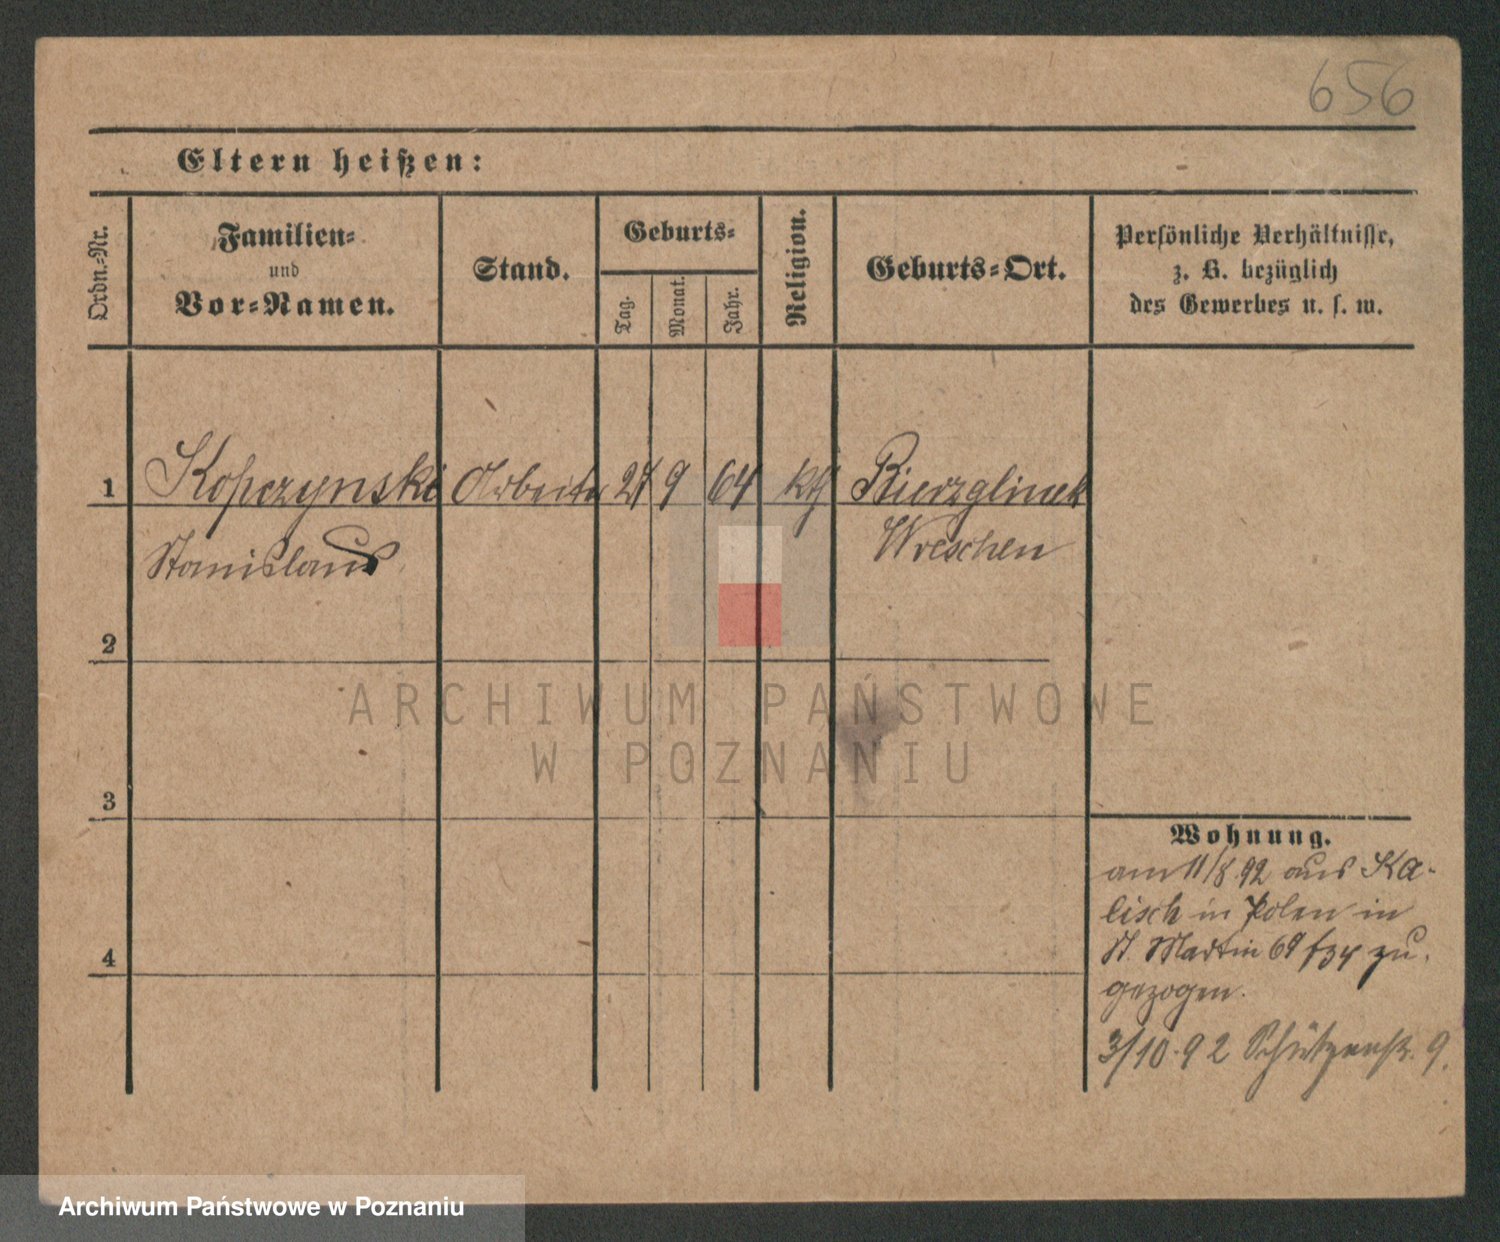 656
Eltern heißen:
Ordn.-Nr.
Familien-
und
Vor-Namen.
Stand.
Geburts-
Tag.
Monat.
Jahr.
Religion.
Geburts-Ort.
Persönliche Verhältnisse,
z. B. bezüglich
des Gewerbes u. s. w.
1 Kopczynski Arbeiter 9 64 kth Bierzglinek
Stanislaus Wreschen
2
ARCHIWUM PAŃSTWOWE
W POZNANIU
3
Wohnung.
am 11/8 92 aus Ka-
lisch in Polen in
St. Martin 69 zu-
gezogen.
4
3/10.92 Schützenstr. 9.
Archiwum Państwowe w Poznaniu